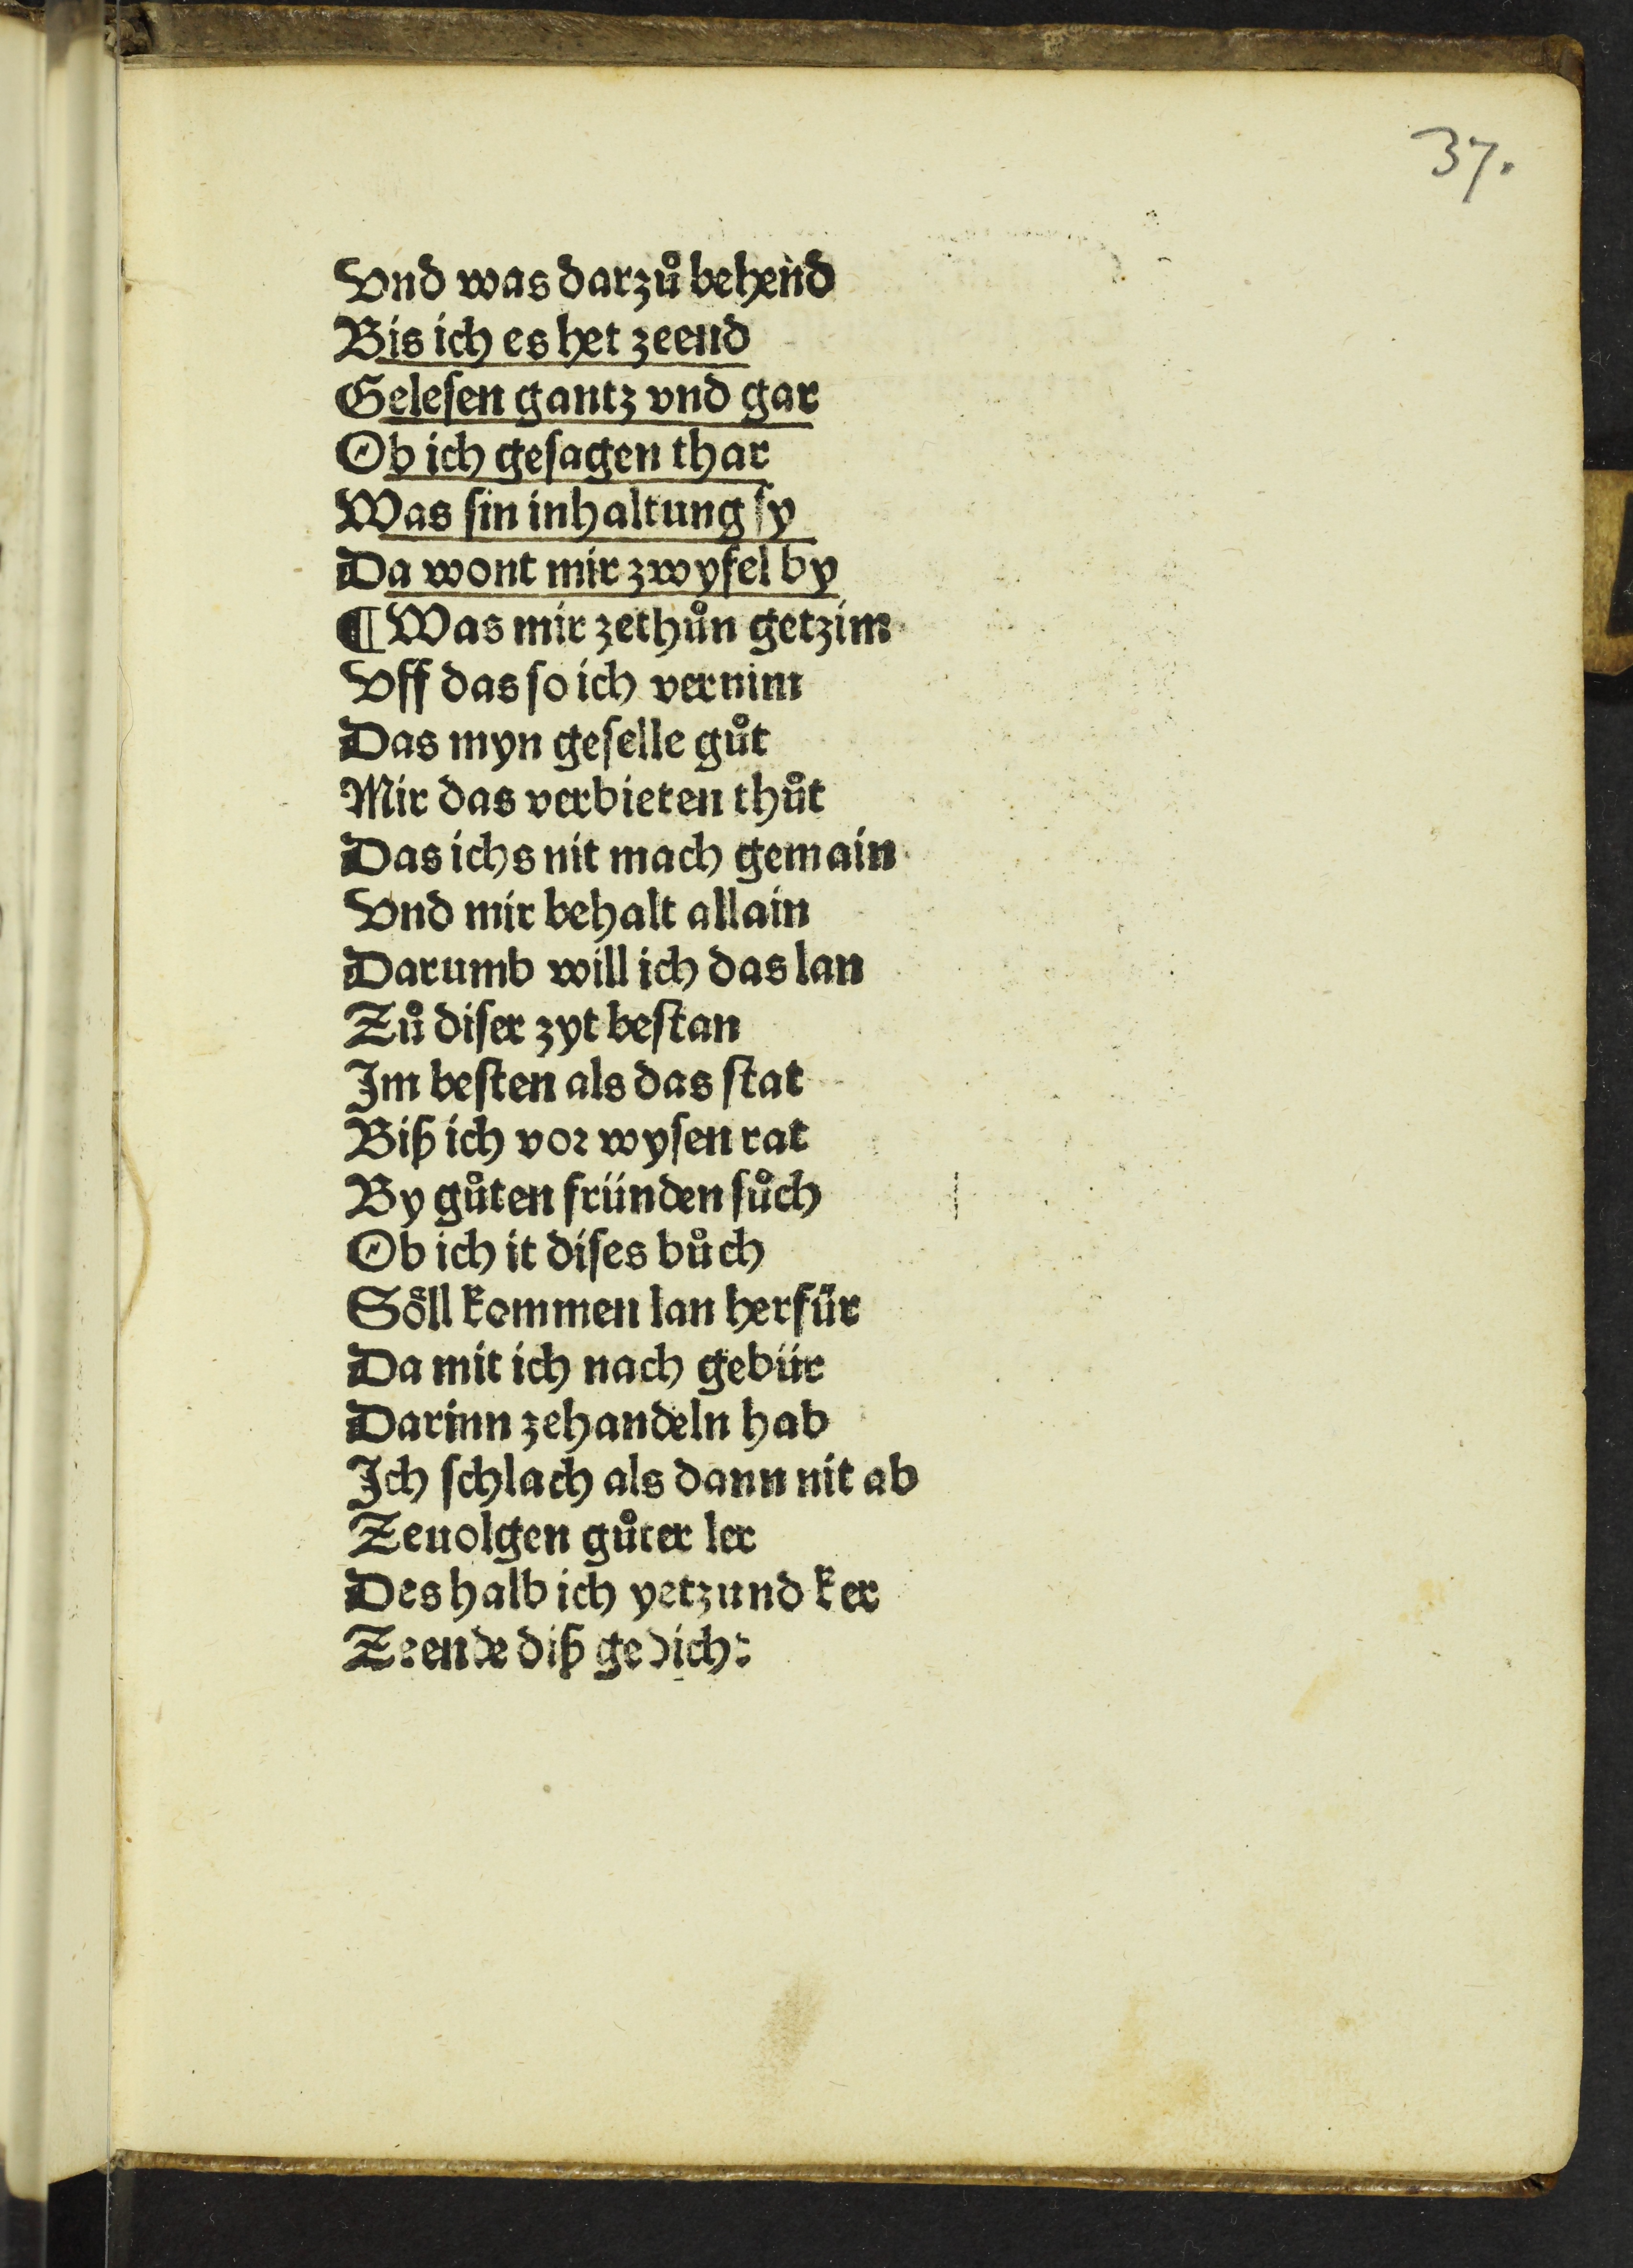 37.
Vnd was darzů behend
Bis ich es het zeend
Geleſen gantz vnd gar
Ob ich geſagen thar
Was ſin inhaltung ſy
Da wont mir zwyfel by
¶ Was mir zethůn getzim
Vff das ſo ich vernim
Das myn geſelle gůt
Mir das verbieten thůt
Das ichs nit mach gemain
Vnd mir behalt allain
Darumb will ich das lan
Zů diſer zyt beſtan
Im beſten als das ſtat
Biß ich vor wyſen rat
By gůten fründen ſůch
Ob ich it diſes bůch
Soͤll kommen lan herfür
Da mit ich nach gebür
Darinn zehandeln hab
Ich ſchlach als dann nit ab
Zeuolgen gůter ler
Des halb ich yetzund ker
Zeende diß gedicht